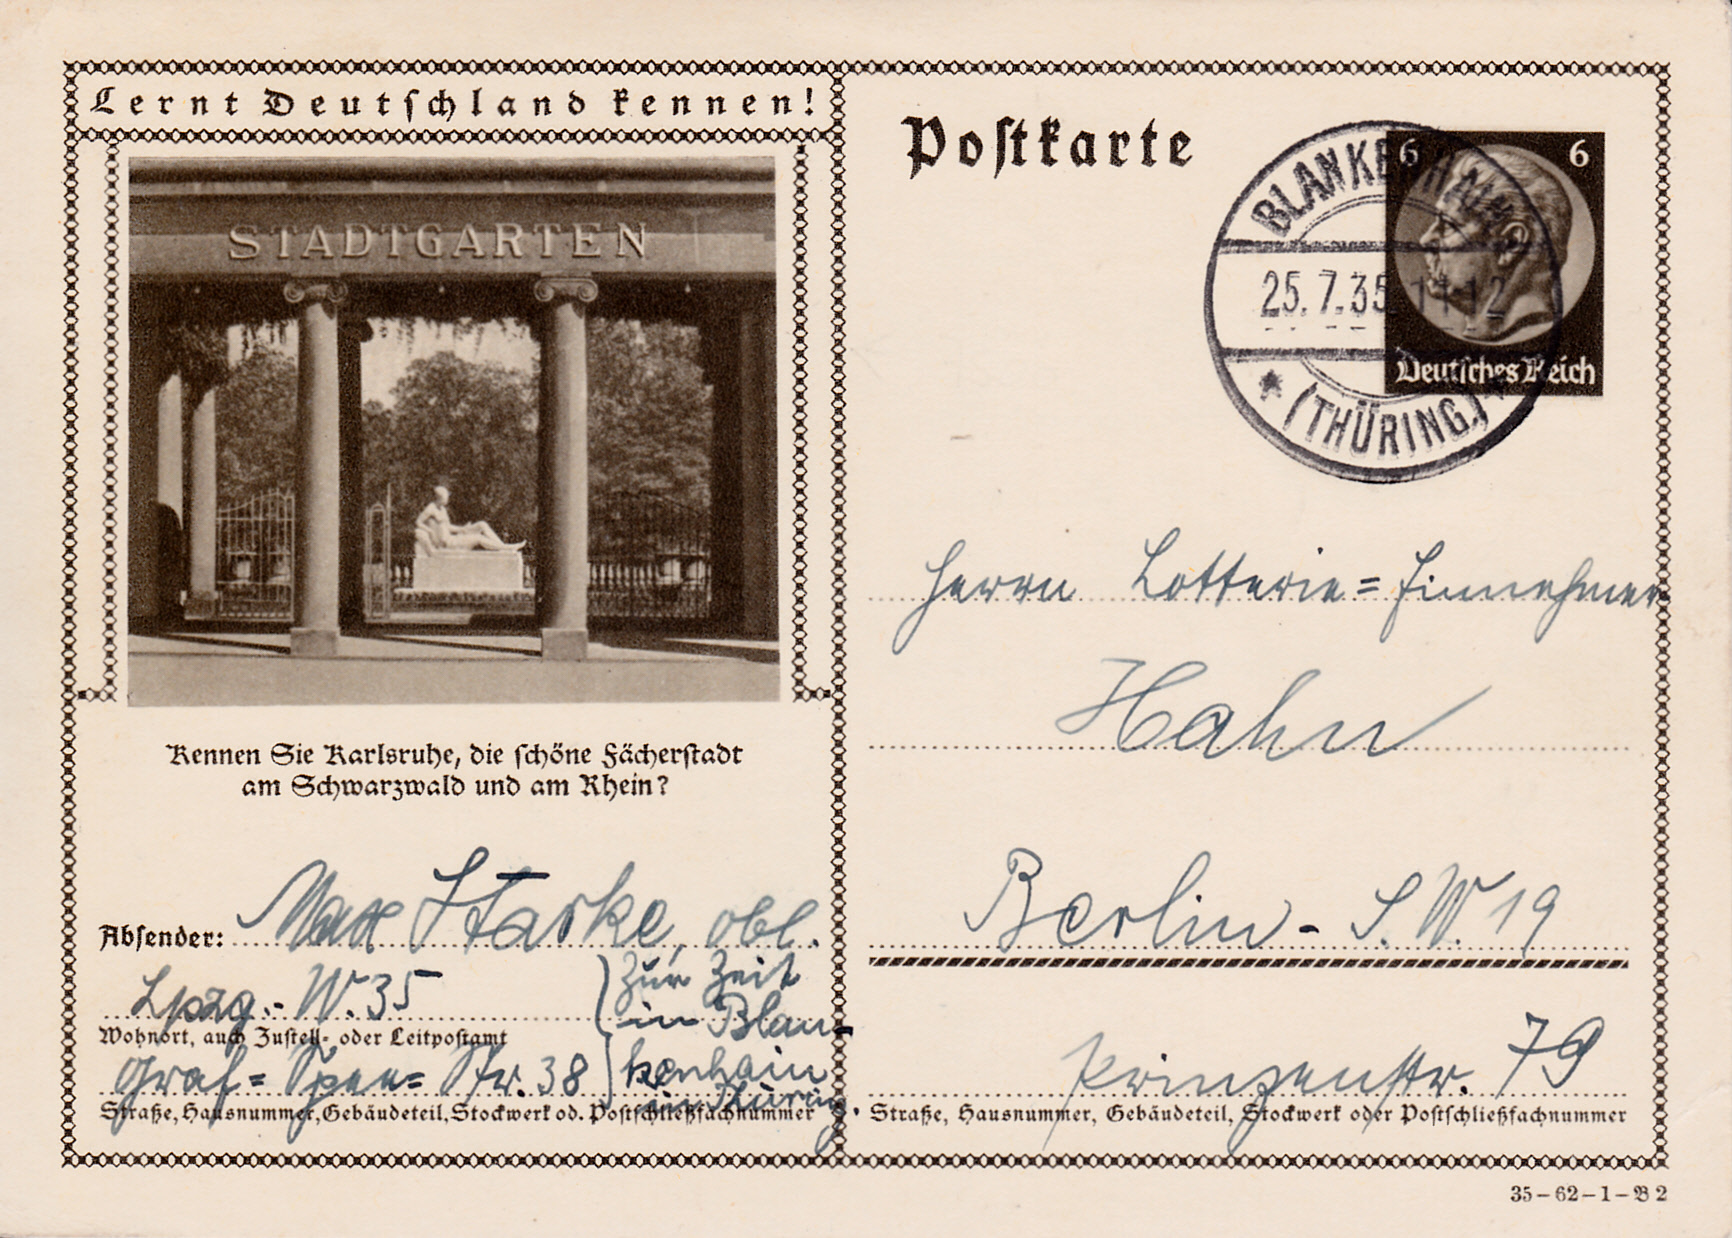 Lernt Deutschland kennen!
STADTGARTEN
Kennen Sie Karlsruhe, die schöne Fächerstadt
am Schwarzwald und am Rhein?
Absender: Max Starke, obl.
Lpzg.- W. 35
Wohnort, auch Zustell- oder Leitpostamt
Graf= Spee= Str. 38
Straße, Hausnummer, Gebäudeteil, Stockwerk od. Postschließfachnummer
zur Zeit
in Blan-
kenhain
in Thüring.
Postkarte
6 6
Deutsches Reich
BLANKENHAIN
25.7.35 11-12
(THÜRING.)
Herrn Lotterie=Einnehmer
Hahn
Berlin - S.W. 19
Prinzenstr. 79
Straße, Hausnummer, Gebäudeteil, Stockwerk oder Postschließfachnummer
35-62-1-B 2